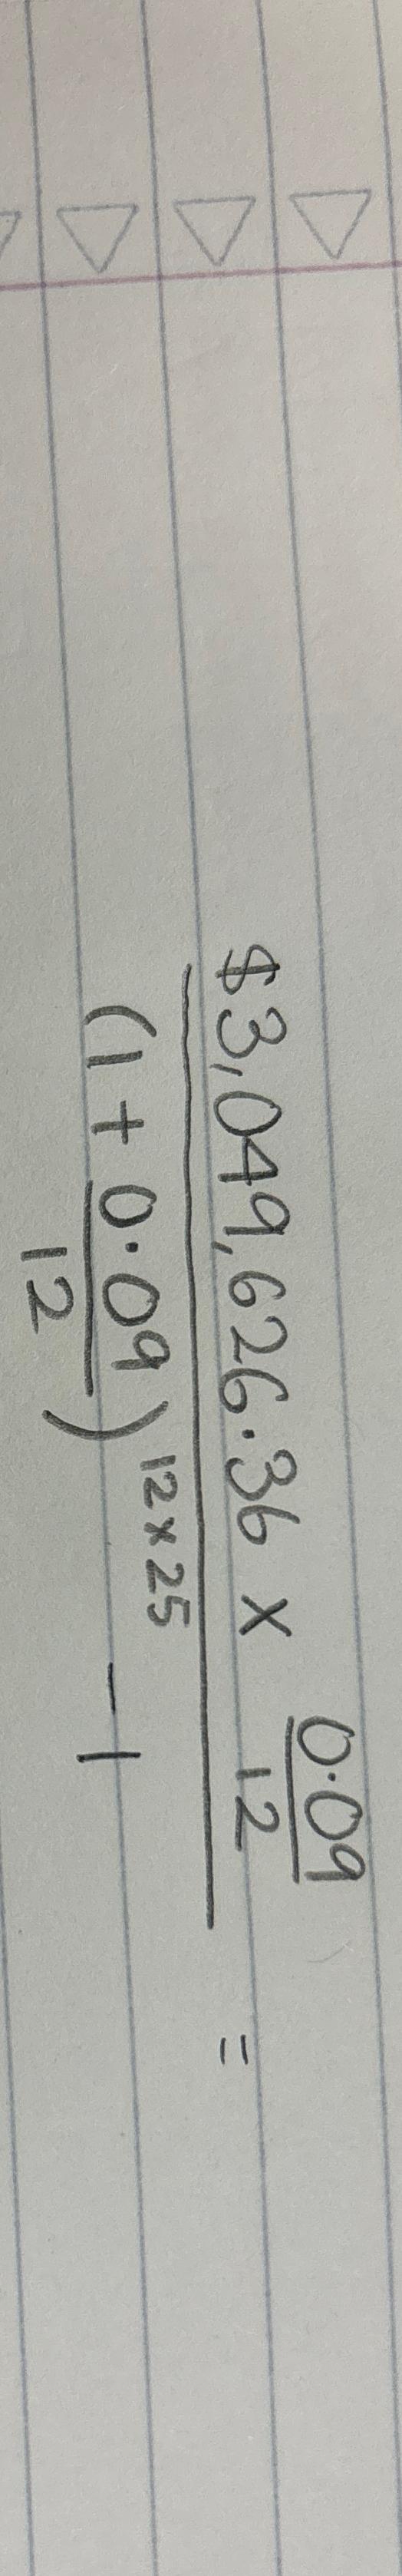 $3,049,626.36 x 0.09/12
(1 + 0.09/12)^12x25 - 1 =